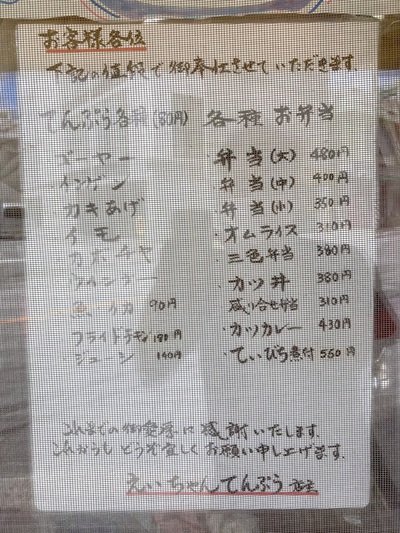 お客様各位
下記の値段で御奉仕させていただきます.
てんぷら各種(80円)
ゴーヤー
インゲン
カキあげ
イモ
カボチャ
ウインナー
魚・イカ 90円
フライドチキン 180円
ジュース 140円
各種 お弁当
・弁当(大) 480円
・弁当(中) 400円
・弁当(小) 350円
・オムライス 310円
・三色弁当 380円
・カツ丼 380円
・盛り合せ弁当 310円
・カツカレー 430円
・てぃびち煮付 550円
これまでの御愛顧に感謝いたします.
これからも どうぞ宜しくお願い申し上げます.
えいちゃんてんぷら 店主